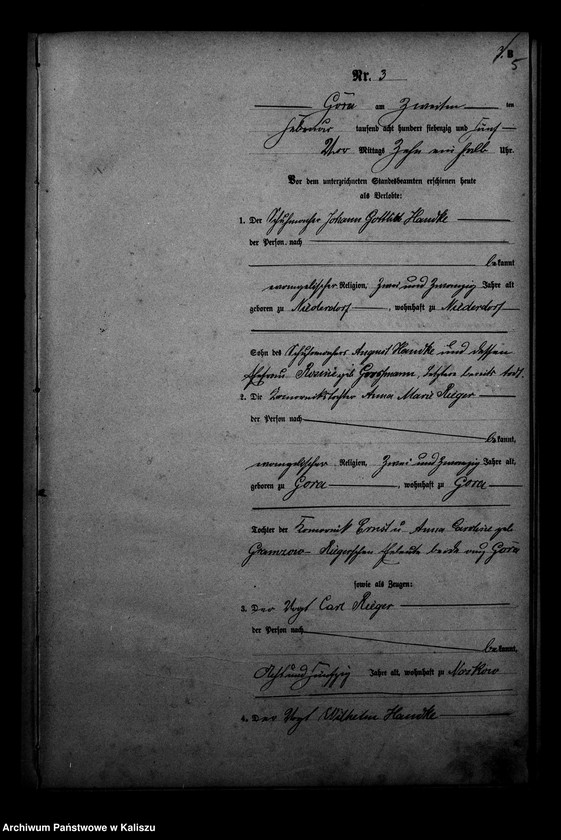 B
5
Nr. 3
Góra am Zweiten ten
Februar tausend acht hundert siebenzig und fünf
Vor Mittags Zehn ein halb Uhr.
Vor dem unterzeichneten Standesbeamten erschienen heute
als Verlobte:
1. Der Schuhmacher Johann Gottlieb Handke
der Person nach
bekannt
evangelischer Religion, Zwei und Zwanzig Jahre alt
geboren zu Niederdorf, wohnhaft zu Niederdorf
Sohn des Schuhmachers August Handke und dessen
Ehefrau Rosine geb. letztere bereits todt.
2. Die Komornikstochter Anna Marie Rieger
der Person nach
bekannt,
evangelischer Religion, Zwei und Zwanzig Jahre alt,
geboren zu Gora, wohnhaft zu Gora
Tochter der Komornik Ernst u. Anna Caroline geb.
Riegerschen Eheleute beide aus Góra
sowie als Zeugen:
3. Der Vogt Carl Rieger
der Person nach
bekannt,
Acht und fünfzig Jahre alt, wohnhaft zu Noskow
4. Der Vogt Wilhelm Handke
Archiwum Państwowe w Kaliszu